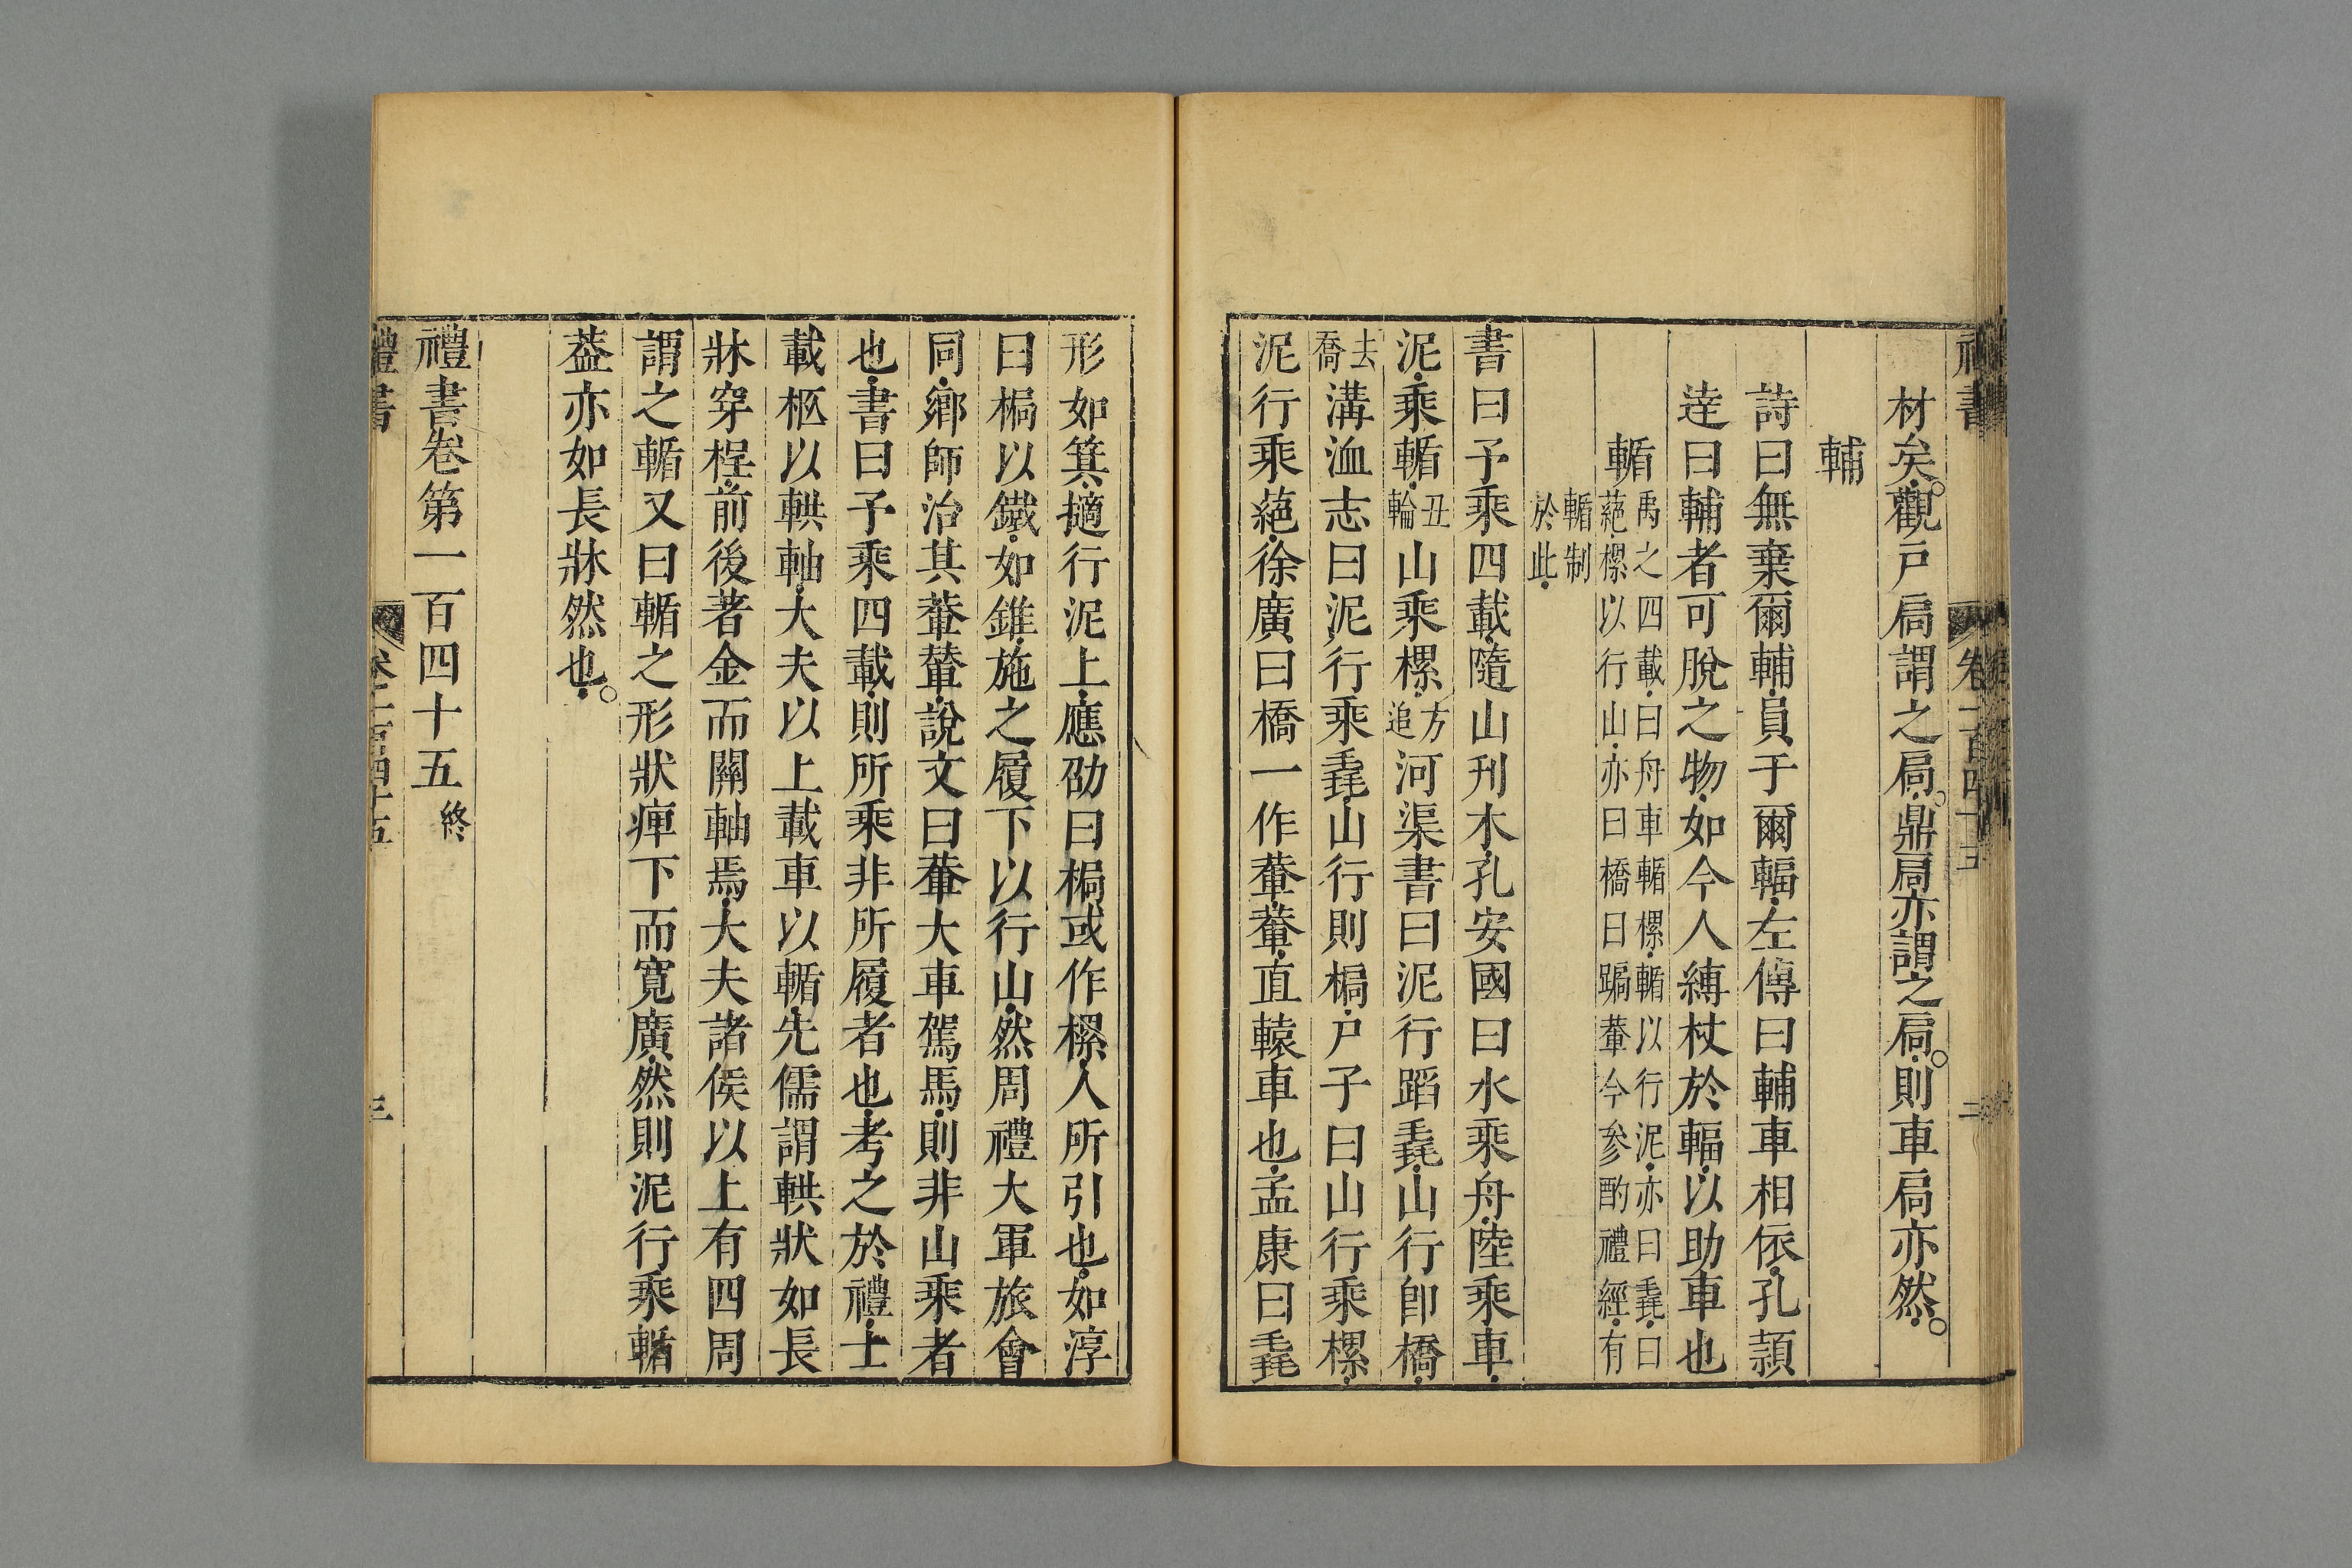 材矣觀戶扃謂之扃鼎扃亦謂之扃則車扃亦然
輔
詩曰無棄爾輔員于爾輻左傳曰輔車相依孔頴
逹曰輔者可脫之物如今人縛杖於輻以助車也
輴
禹之四載曰舟車輴樏輴以行泥亦曰毳曰
蕝樏以行山亦曰橋曰𨂯輂今參酌禮經有
輴制
於此
書曰予乘四載隨山刋木孔安國曰水乘舟陸乘車
泥乘輴丑輪山乘樏方追河渠書曰泥行蹈毳山行卽橋
去喬溝洫志曰泥行乘毳山行則梮尸子曰山行乘樏
泥行乘蕝徐廣曰橋一作輂輂直轅車也孟康曰毳
形如箕擿行泥上應劭曰梮或作樏人所引也如淳
曰梮以鐵如錐施之履下以行山然周禮大軍旅會
同鄉師治其輂輦說文曰輂大車駕馬則非山乘者
也書曰予乘四載則所乘非所履者也考之於禮士
載柩以輁軸大夫以上載車以輴先儒謂輁狀如長
牀穿桯前後著金而關軸焉大夫諸侯以上有四周
謂之輴又曰輴之形狀痺下而寛廣然則泥行乘輴
葢亦如長牀然也
禮書卷第一百四十五 終
禮書 卷一百四十五 三